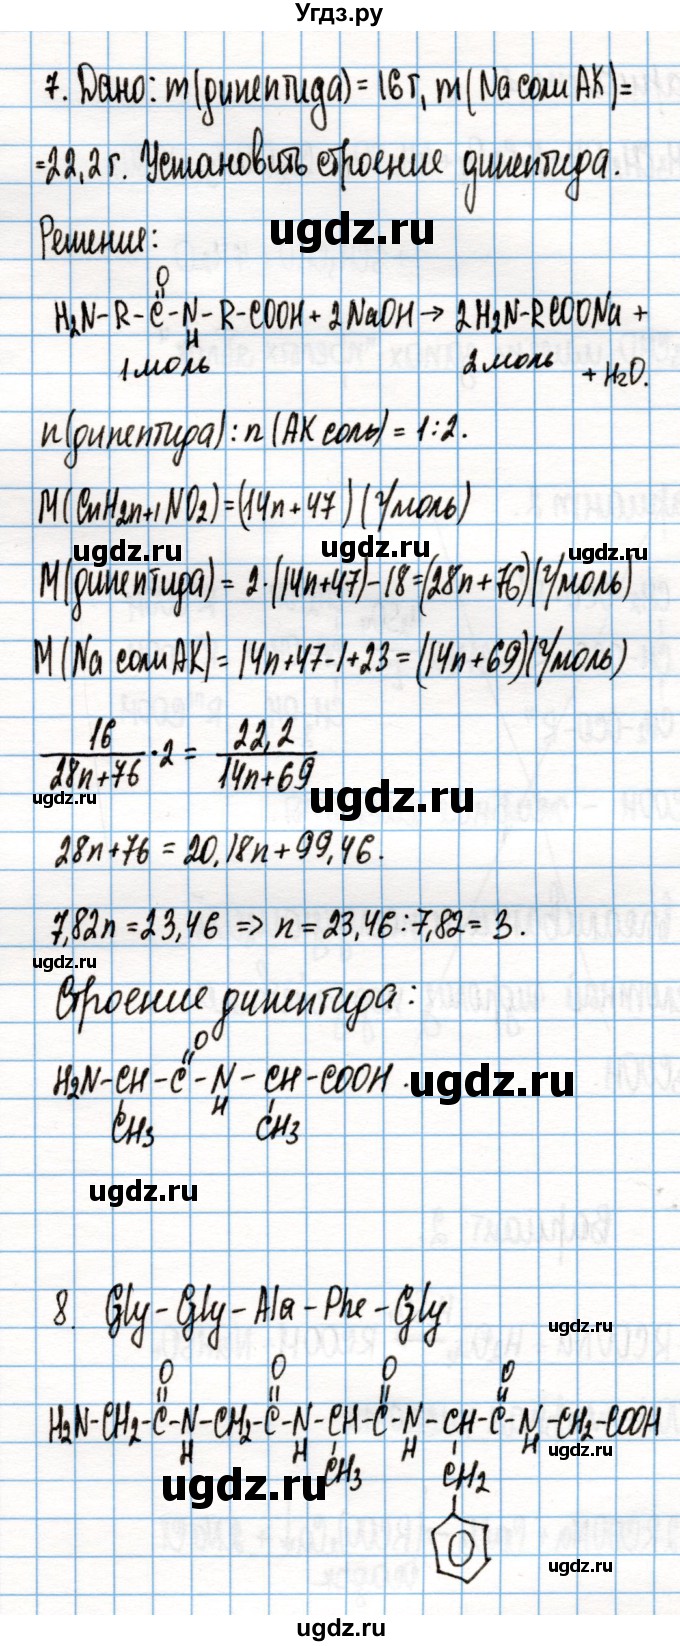 Угдз.ру
7. Дано: m(дипептида) = 16 г, m(Na соли АК) =
= 22,2 г. Установить строение дипептида.
ugdz.ru
Решение:
O
H₂N-R-C-N-R-COOH + 2NaOH → 2H₂N-RCOONa +
H
1 моль 2 моль + H₂O.
n(дипептида) : n(АК соль) = 1:2.
M(CnH2n+1NO2) = (14n+47) (г/моль)
ugdz.ru ugdz.ru ugdz.ru
M(дипептида) = 2·(14n+47)-18 = (28n+76) (г/моль)
M(Na соли АК) = 14n+47-1+23 = (14n+69) (г/моль)
16/28n+76 · 2 = 22,2/14n+69
ugdz.ru ugdz.ru
28n+76 = 20,18n+99,46.
7,82n = 23,46 => n = 23,46:7,82 = 3.
ugdz.ru
Строение дипептида:
O
H₂N-CH-C-N-CH-COOH.
ugdz.ru
H
CH₃ CH₃
ugdz.ru
8. Gly-Gly-Ala-Phe-Gly
ugdz.ru
O O O O
H₂N-CH₂-C-N-CH₂-C-N-CH-C-N-CH-C-N-CH₂-COOH
H H H H
ugdz.ru
CH₃ CH₂
ugdz.ru
ugdz.ru
ugdz.ru